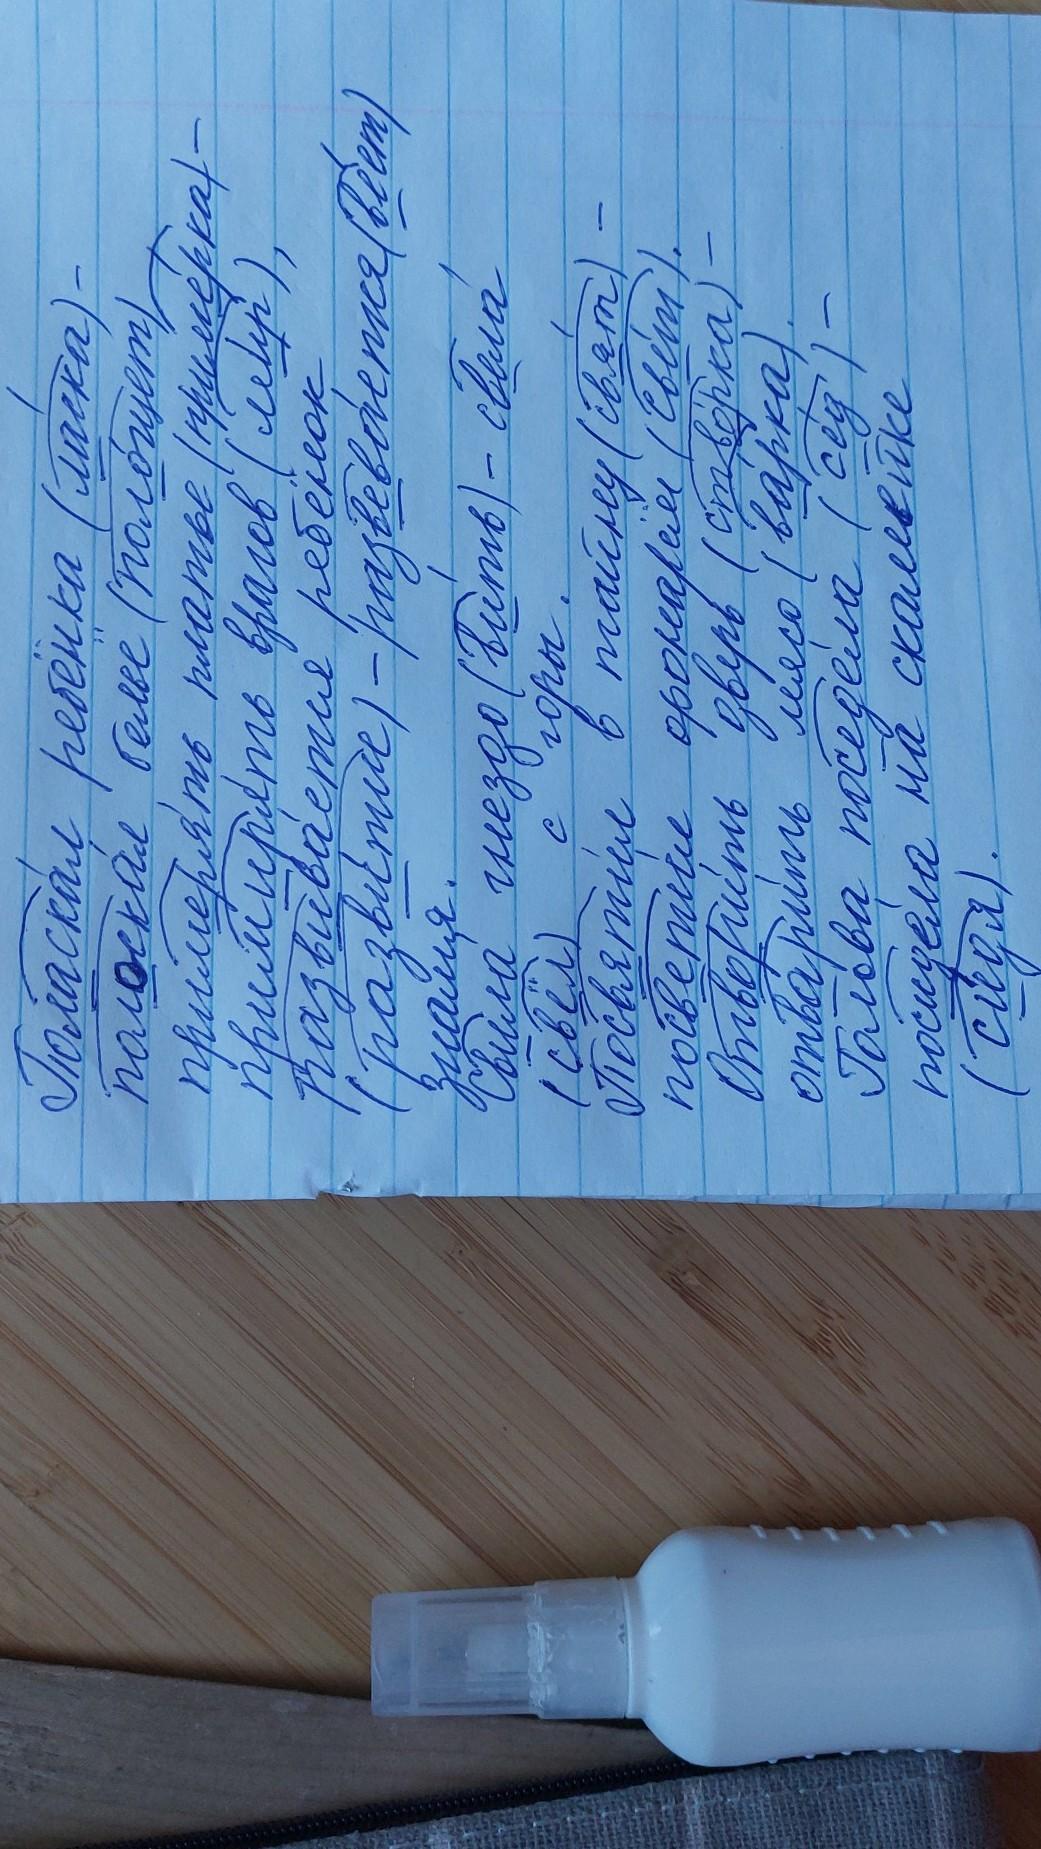 Поласкал ребёнка (ласка) –
полоскал бельё (полощет)
примерять платье (примерка) –
примирять врагов (мир),
Развивается ребёнок
(развитие) – развевается (веет)
знамя.
Свила гнездо (вить) – свела
(свёл) с горы.
Посвятил в тайну (свят) –
посветил фонарём (свет).
Отворить дверь (створка) –
отварить мясо (варка).
Голова поседела (сед) –
посидела на скамейке
(сидя).